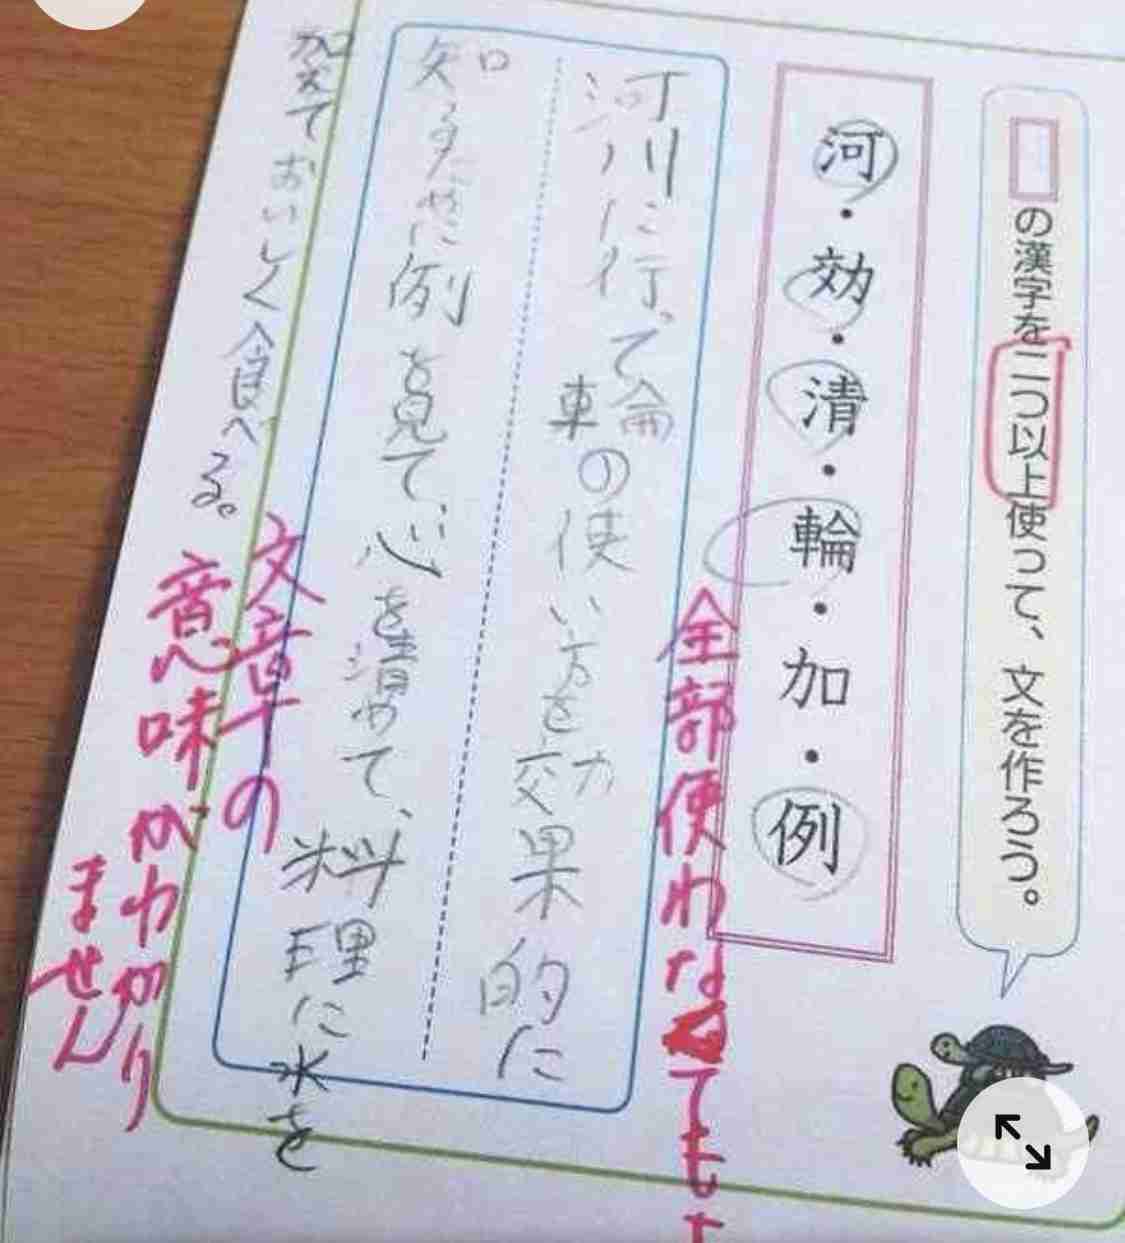 □の漢字を二つ以上使って、文を作ろう。
河・効・清・輪・加・例
全部使わなくてもよ
河川に行って輪の使い方を効果的に
知るために例を見て、心を清めて、料理に水を
加えておいしく食べる。
文章の
意味がわかり
ません